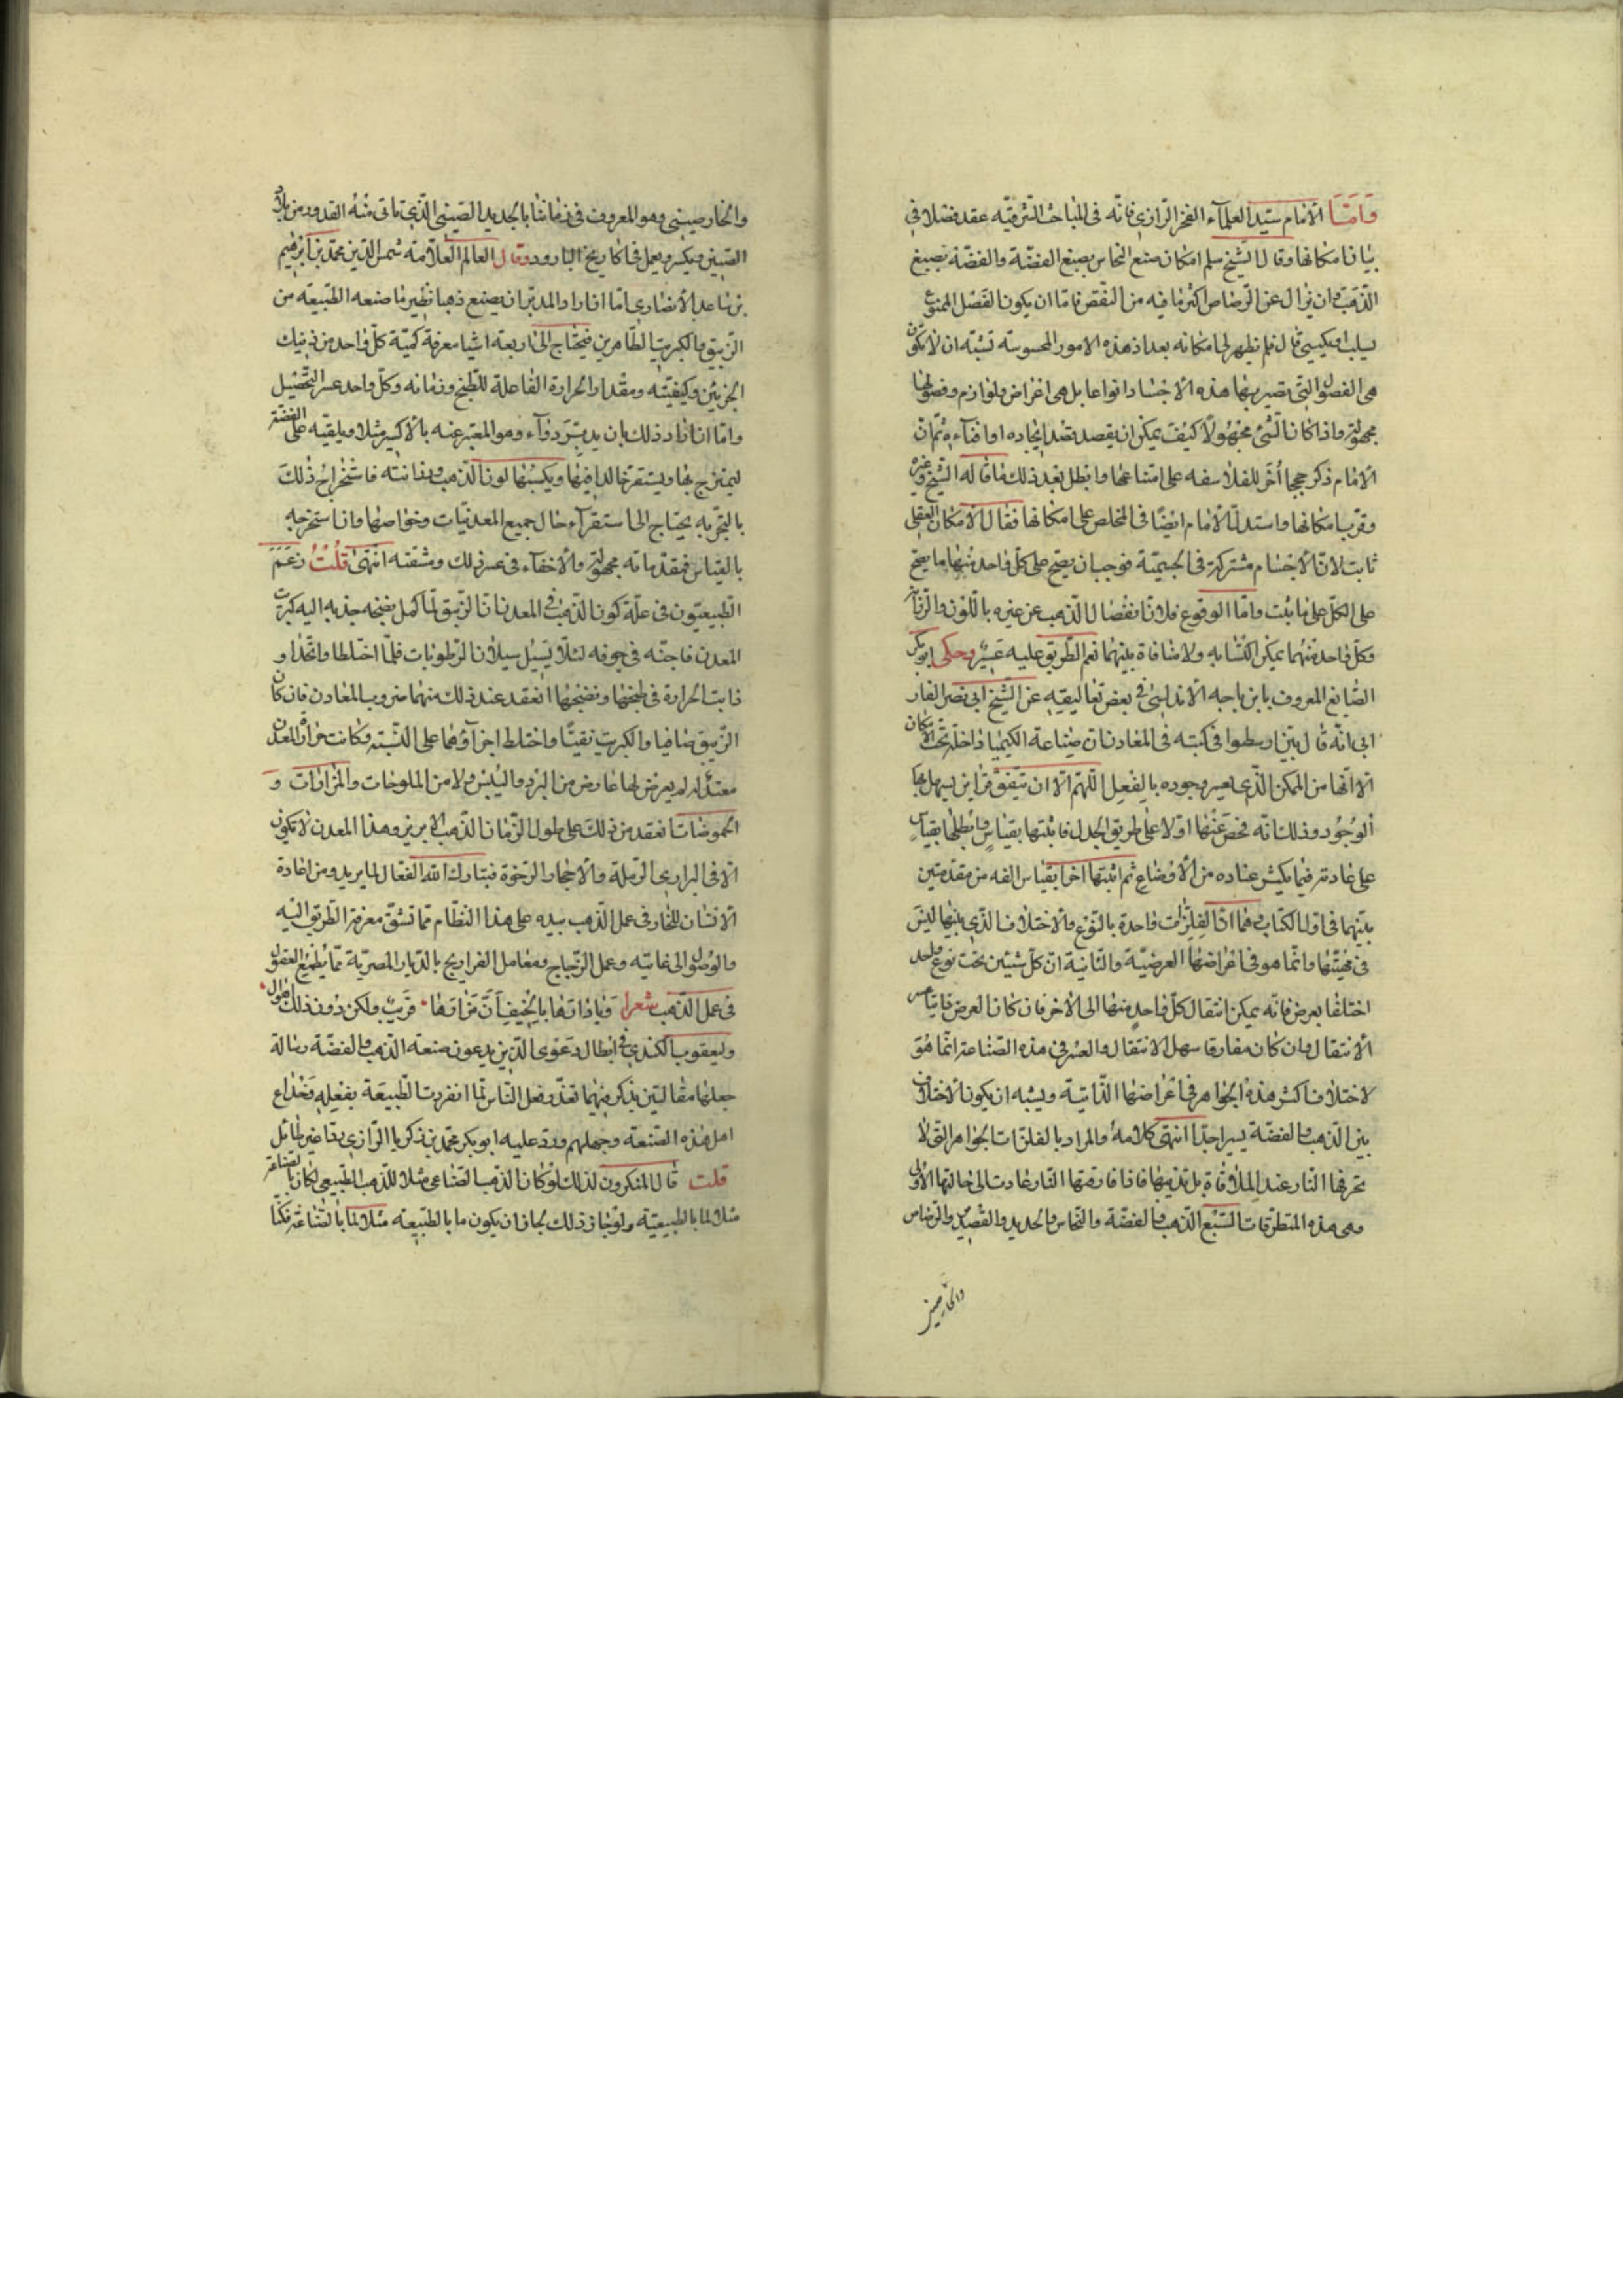 وَامَّا الامام سيّد العلمآء الفخر الرازى فانّه فى المباحث المشرقيّه عقد فضلا فى
بيان امكانها وقال الشّيخ سلم امكان صبغ النحاس بصبغ الفضّة والفضّة بصبغ
الذّهب وان يزال عن الرّصاص اكثر ما فيه من النّقص فامّا ان يكون الفصل المنوع
يسلب او يكسى قال فلم يظهر لى امكانه بعد اذ هذه الامور المحسوسة تشبه ان لا تكون
هى الفصول التى تصير بها هذه الاجساد انواعا بل هى اعراض ولوازم وفصولها
مجهولة واذا كان الشّئ مجهولاً كيف يمكن ان يقصد قصد ايجاده او افنآءه ثمّ انّ
الامام ذكر حججا أخر للفلاسفه على امتناعها وابطل بعد ذلك ما قاله الشّيخ وغيره
وقرّب امكانها واستدلّ الامام ايضًا فى الملخص على امكانها فقال الامكان العقلى
ثابت لانّ الاجسام مشتركة فى الجسميّة فوجب ان يصّح على كلّ واحد منها ما يصّح
على الكلّ على ما ثبت وامّا الوقوع فلانّ انفصال الذّهب عن غيره باللّون والرّزانة
وكلّ واحد منهما يمكن اكتسابه ولا منافاة بينهما نعم الطّريق عليه عَسِيرٌ وحكى ابو بكر
الصّايغ المعروف بابن باجه الاندلسى فى بعض تعاليقه عن الشّيخ ابى نصر الفار
ابى انّه قال بيّن ارسطوا فى كتبه فى المعادن انّ صناعة الكيميا داخلة تحت الامكان
الا انّها من الممكن الّذى يعسر وجوده بالفعل اللّهمّ الّا ان تتّفق قراين يسهل بها
الوجُود وذلك انّه فحص عنها اوّلا على طريق الجدل فاثبتها بقياسٍ وابطلها بقياس
على عادته فيما يكثر عناده من الاوضاع ثم اثبتها اخرا بقياس الفه من مقدّمتين
بيّنهما فى اوّل الكتاب وهما انّ الفلزّات واحدة بالنّوع والاختلاف الذّى بينها ليس
فى مهيّتها وانّما هو فى اعراضها العرضيّة والثّانية انّ كلّ شيئين تحت نوع واحد
اختلفا بعرض فانّه يمكن انتقال كلّ واحدٍ منها الى الاخر فان كان العرض ذاتيّا عسر
الانتقال وان كان مفارقا سهل الانتقال والعسر فى هذه الصّناعة انّما هو
لاختلاف اكثر هذه الجواهر فى اعراضها الذّاتيّة ويشبه ان يكون الاختلاف
بين الذّهب والفضّة يسيرا جدّا انتهى كلامه والمراد بالفلزّات الجواهر التى لا
تحرقها النّار عند الملاقاة بل تذيبها فاذا فارقتها النّار عادت الى حالتها الاولى
وهى هذه المتطرّقات السّبع الذّهب والفضّة والنّحاس والحديد والقصدير والرّصاص
والخارصينى
والخارصينى وهو المعروف فى زماننا بالحديد الصّينى الّذى تاتى منه القدور من بلاد
الصّين ويكسر ويعمل فى اكاريخ البارود وقال العالم العلاّمة شمس الدّين محمّد بن ابراهيم
بن ساعد الانصارى امّا اذا اراد المدبّر ان يصنع ذهبا نظير ما صنعه الطّبيعة من
الزّيبق والكبريت الطّاهرين فيحتاج الى اربعة اشيا معرفة كميّة كلّ واحد من ذينك
الجزئين وكيفيّته ومقدار الحرارة الفاعلة للطّبخ وزمانه وكلّ واحد عسر التّحصيل
وامّا ان اراد ذلك بان يدبّر دوآء وهو المعبّر عنه بالاكسير مثلا ويلقيه على الفضّة
ليمتزج بها ويستقرّ خالدا فيها ويكسبُها لون الذّهب ورزانته فاستخراج ذلك
بالتجربه يحتاج الى استقرآء حال جميع المعدنيّات وخواصّها وان استخرجه
بالقياس فمقدّماته مجهولة والاخفآء فى عسر ذلك ومشقته انتهى قلتُ زعم
الطّبيعيّون فى علّة كون الذّهب فى المعدن انّ الزّيبق لمّا كمل نضجه جذبه اليه كبريت
المعدن فاجنّه فى جوفه لئلاّ يسيل سيلان الرّطوبات فلمّا اختلطا واتّحدا و
ذابت الحرارة فى طبخها ونضجها انعقد عند ذلك منهما ضروب المعادن فان كان
الزّيبق صافيا والكبريت نقيّا واختلط اجزآؤهما على النّسبة وكانت حرارة المعدن
معتدلة لم يعرض لها عارض من البرد واليُبس ولا من الملوحات والمرارات و
الحموضات انعقد من ذلك على طول الزّمان الذّهب الابريز وهذا المعدن لا يكون
الا فى البرارى الرّملة والاحجار الرّخوة فتبارك الله الفعّال لما يريد ومن اعادة
الانسان للخاد فى عمل الذّهب بيده على هذا النّظام ممّا تشقّ معرفة الطّريق اليه
والوُصول الى غايته وعمل الزّجاج ومعامل الفراريج بالدّيار المصريّة ممّا يُطمع العقول
فى عمل الذّهب شعرا فيا دارها بالخيف انّ مزارها قريبٌ ولكن دون ذلك اهوال
وليعقوب الكندى فى ابطال دعوى الّذين يدعون صنعة الذّهب والفضّة رسالة
جعلها مقالتين يذكر فيهما تعذّر فعل النّاس لما انفردت الطّبيعة بفعله وخداع
اهل هذه الصّنعة وجهلهم وردّ عليه ابو بكر محمّد بن زكريا الرّازى ردّا غير طائل
قلت قال المنكرون لذلك لو كان الذّهب الصّناعى مثلا للذّهب الطّبيعى لكان ما بالصّناعة
مثلا لما بالطبيعيّة ولو جاز ذلك لجاز ان يكون ما بالطّبيعة مثلا لما بالصّناعة فكنّا